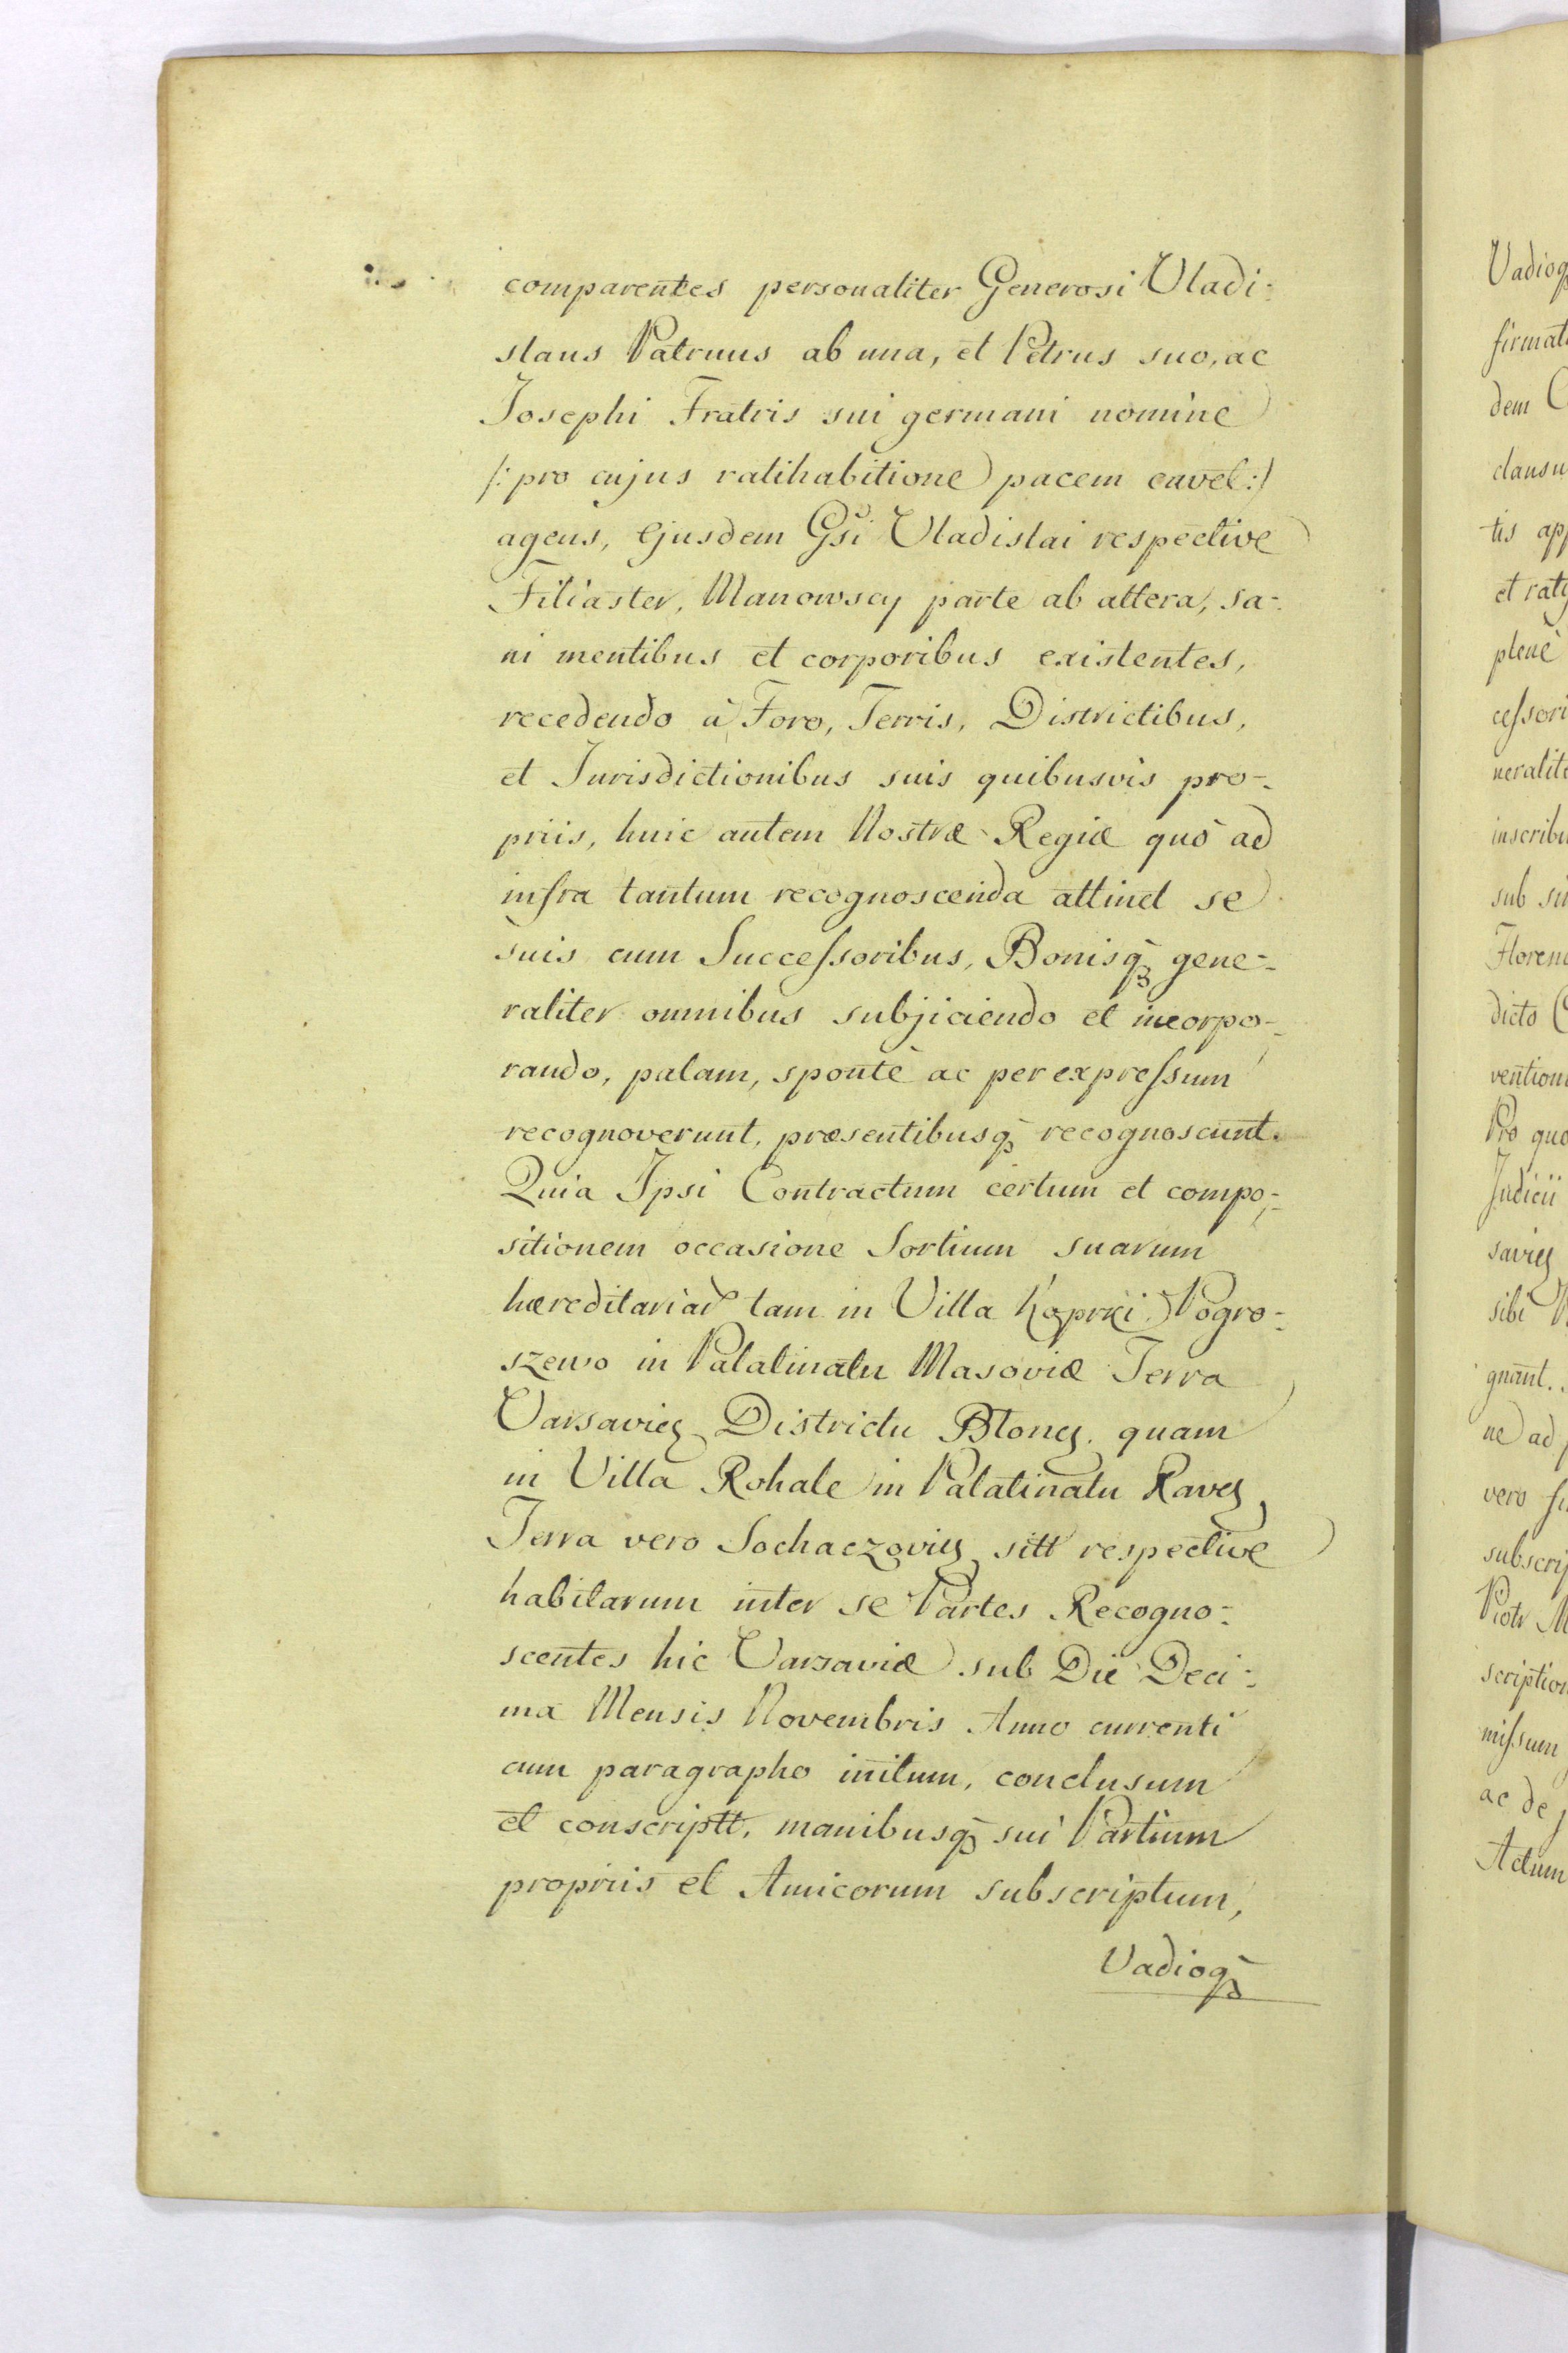 comparentes personaliter Generosi Vladi-
slaus Patruus ab una, et Petrus suo, ac
Josephi Fratris sui germani nomine
/: pro cujus ratihabitione pacem cavet :/
agens, Ejusdem Gsi Vladislai respective
Filiaster, Manowscy parte ab altera, sa-
ni mentibus et corporibus existentes,
recedendo à Foro, Terris, Districtibus,
et Jurisdictionibus suis quibusvis pro-
priis, huic autem Nostræ Regiæ quò ad
infra tantum recognoscenda attinet se
suis cum Successoribus, Bonisq̃ gene-
raliter omnibus subjiciendo et incorpo-
rando, palam, spontè ac per expressum
recognoverunt, præsentibusq̃ recognoscunt.
Quia Ipsi Contractum certum et compo-
sitionem occasione Sortium suarum
hæreditariar tam in Villa Koprki Pogro-
szewo in Palatinatu Masoviæ Terra
Varsavieñ Districtu Bloneñ quam
in Villa Rokale in Palatinatu Raveñ
Terra vero Sochaczovieñ sitt respective
habitarum inter se Partes Recogno-
scentes hic Varsaviæ sub Die Deci-
ma Mensis Novembris Anno currenti
cum paragrapho initum, conclusum
et conscriptt, manibusq̃ sui Partium
propriis et Amicorum subscriptum,
Vadioq̃
Vadioq̃
firmat
dem C
clausu
tis app
et raty
plenè
cessori
neralite
inscribu
sub
Floren
dicto
vention
Pro quo
Judicii
savieñ
sibi
gnant.
ne ad
vero
subscrip
Piotr M
scription
missum
ac de
Actum